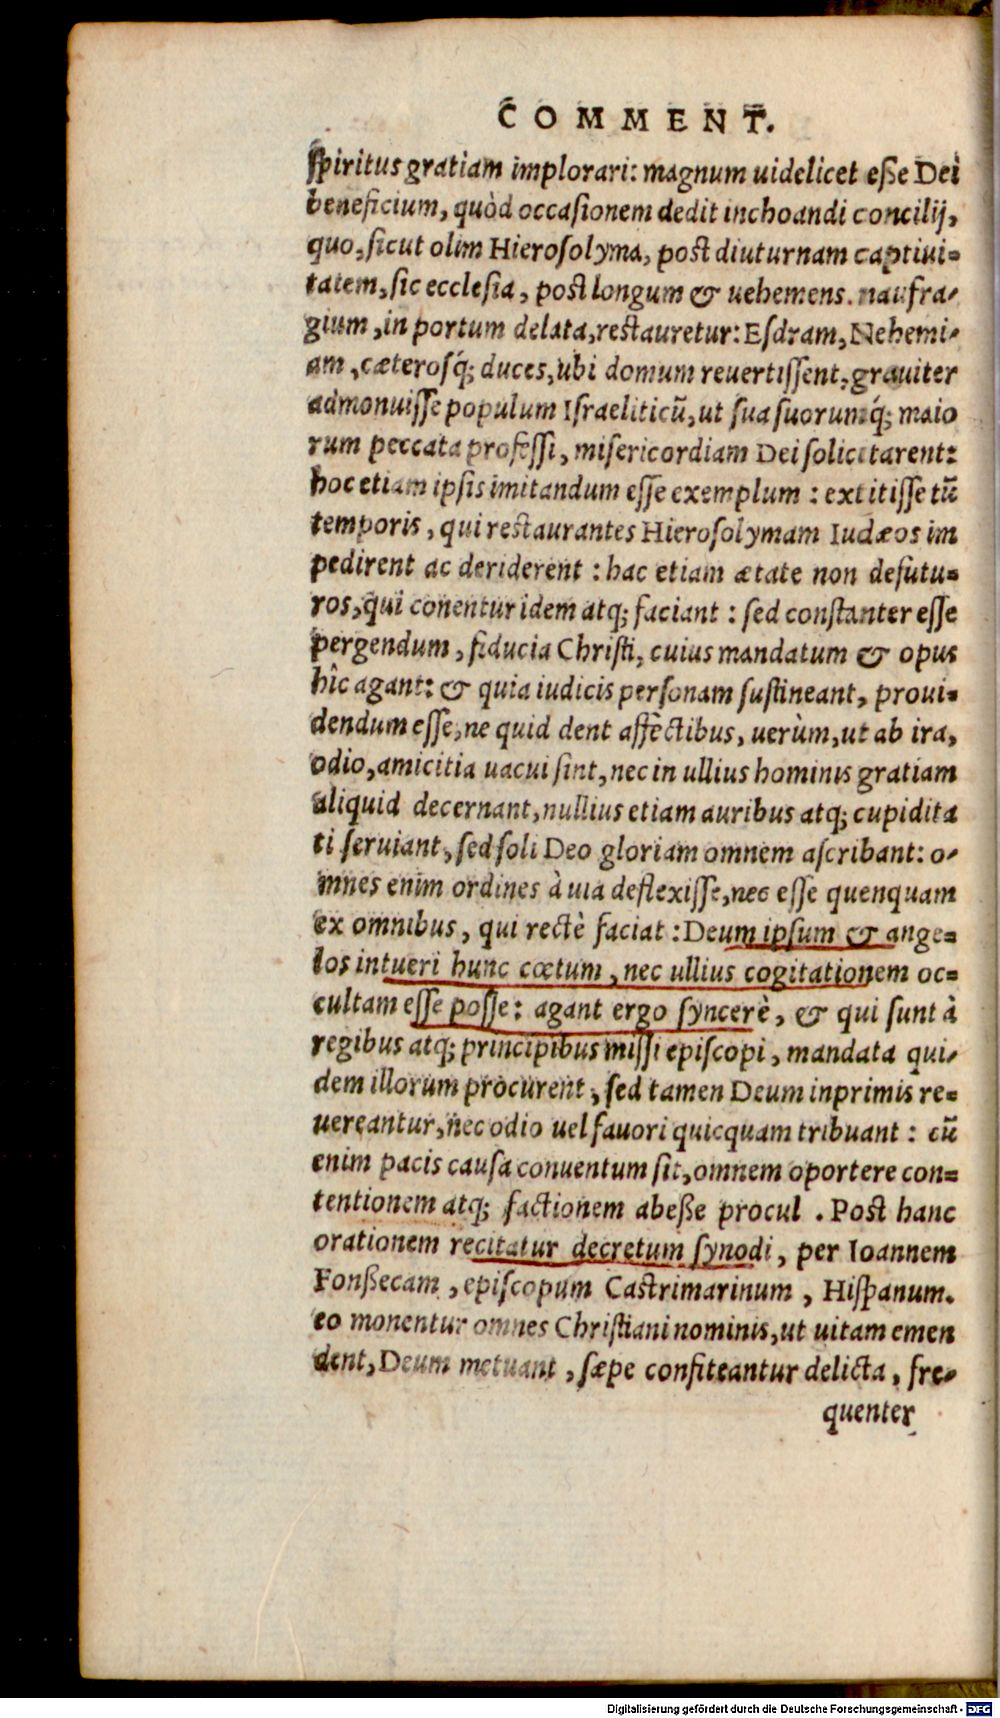 COMMENT.
ſpiritus gratiam implorari: magnum uidelicet eße Dei
beneficium, quòd occaſionem dedit inchoandi concilij,
quo, ſicut olim Hieroſolyma, poſt diuturnam captiui=
tatem, ſic eccleſia, poſt longum & uehemens. naufra-
gium, in portum delata, reſtauretur: Eſdram, Nehemi-
am, cæteroſq́; duces, ubi domum reuertiſſent, grauiter
admonuiſſe populum Iſraeliticũ, ut ſua ſuorumq́; maio
rum peccata profeſſi, miſericordiam Dei ſolicitarent:
hoc etiam ipſis imitandum eſſe exemplum: extitiſſe tũ
temporis, qui reſtaurantes Hieroſolymam Iudæos im
pedirent ac deriderent: hac etiam ætate non defutu=
ros, qui conentur idem atq; faciant: ſed conſtanter eſſe
pergendum, fiducia Chriſti, cuius mandatum & opus
hîc agant: & quia iudicis perſonam ſuſtineant, proui=
dendum eſſe, ne quid dent affectibus, uerùm, ut ab ira,
odio, amicitia uacui ſint, nec in ullius hominis gratiam
aliquid decernant, nullius etiam auribus atq; cupidita
ti ſeruiant, ſed ſoli Deo gloriam omnem aſcribant: o-
mnes enim ordines à uia deflexiſſe, nec eſſe quenquam
ex omnibus, qui rectè faciat: Deum ipſum & ange=
los intueri hunc cœtum, nec ullius cogitationem oc=
cultam eſſe poſſe: agant ergo ſyncerè, & qui ſunt à
regibus atq; principibus miſſi epiſcopi, mandata qui-
dem illorum procurent, ſed tamen Deum inprimis re=
uereantur, nec odio uel fauori quicquam tribuant: cũ
enim pacis cauſa conuentum ſit, omnem oportere con=
tentionem atq; factionem abeße procul. Poſt hanc
orationem recitatur decretum ſynodi, per Ioannem
Fonßecam, epiſcopum Caſtrimarinum, Hiſpanum.
eo monentur omnes Chriſtiani nominis, ut uitam emen
dent, Deum metuant, ſæpe confiteantur delicta, fre-
quenter
Digitalisierung gefördert durch die Deutsche Forschungsgemeinschaft - DFG